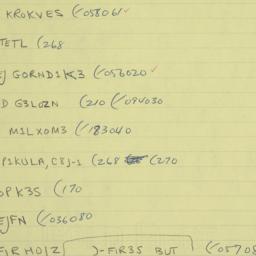 KROKVES (/058061
TETL (268
GORND1K3 (/056020
D G3LOZN (210 (/094030
M1LXOM3 (/183040
P1KULA, C8J-1 (268 (270
OPK3S (170
EJFN (/036080
F1RHO1Z J-F1R3S BUT (/05708